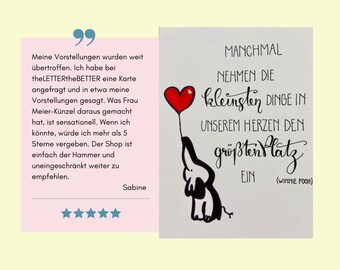 Meine Vorstellungen wurden weit
übertroffen. Ich habe bei
theLETTERtheBETTER eine Karte
angefragt und in etwa meine
Vorstellungen gesagt. Was Frau
Meier-Künzel daraus gemacht
hat, ist sensationell. Wenn ich
könnte, würde ich mehr als 5
Sterne vergeben. Der Shop ist
einfach der Hammer und
uneingeschränkt weiter zu
empfehlen.
Sabine
MANCHMAL
NEHMEN DIE
kleinsten DINGE IN
UNSEREM HERZEN DEN
größten Platz
EIN
(WINNIE POOH)